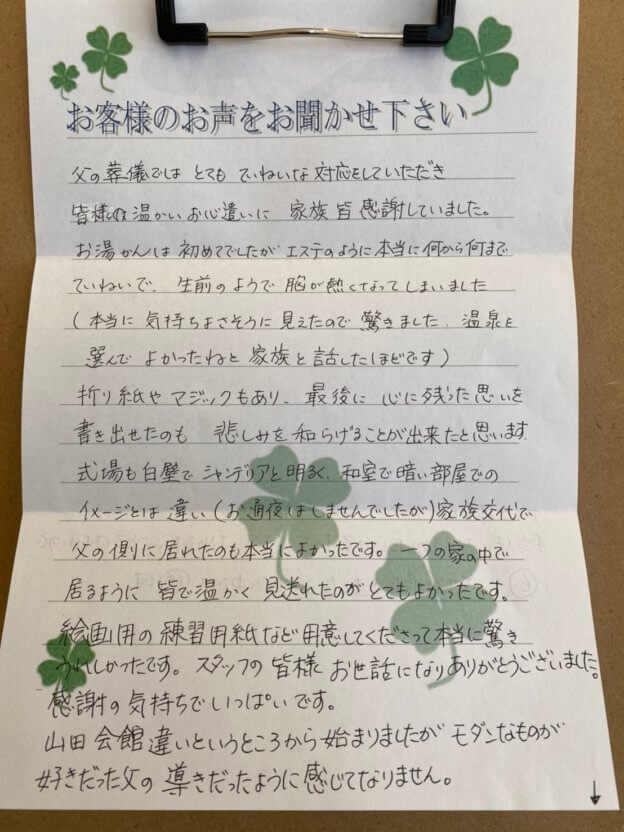 お客様のお声をお聞かせ下さい
父の葬儀では とても ていねいな 対応をしていただき
皆様の温かいお心遣いに 家族皆感謝していました。
お湯かんは 初めてでしたが エステのように 本当に何から何まで
ていねいで、生前のようで 胸が熱くなってしまいました
(本当に 気持ちよさそうに見えたので 驚きました. 温泉を
選んで よかったねと 家族と話したほどです)
折り紙や マジックもあり、最後に 心に残った思いを
書き出せたのも 悲しみを和らげることが出来たと思います.
式場も白壁で シャンデリアと明るく、和室で暗い部屋での
イメージとは違い(お通夜はしませんでしたが)家族交代で、
父の側に居れたのも本当によかったです。一つの家の中で
居るように 皆で温かく 見送れたのがとてもよかったです。
絵画用の練習用紙など用意してくださって本当に驚き
うれしかったです。スタッフの皆様 お世話になりありがとうございました。
感謝の気持ちでいっぱいです。
山田会館違いというところから始まりましたが モダンなものが
好きだった父の 導きだったように感じてなりません。
↓